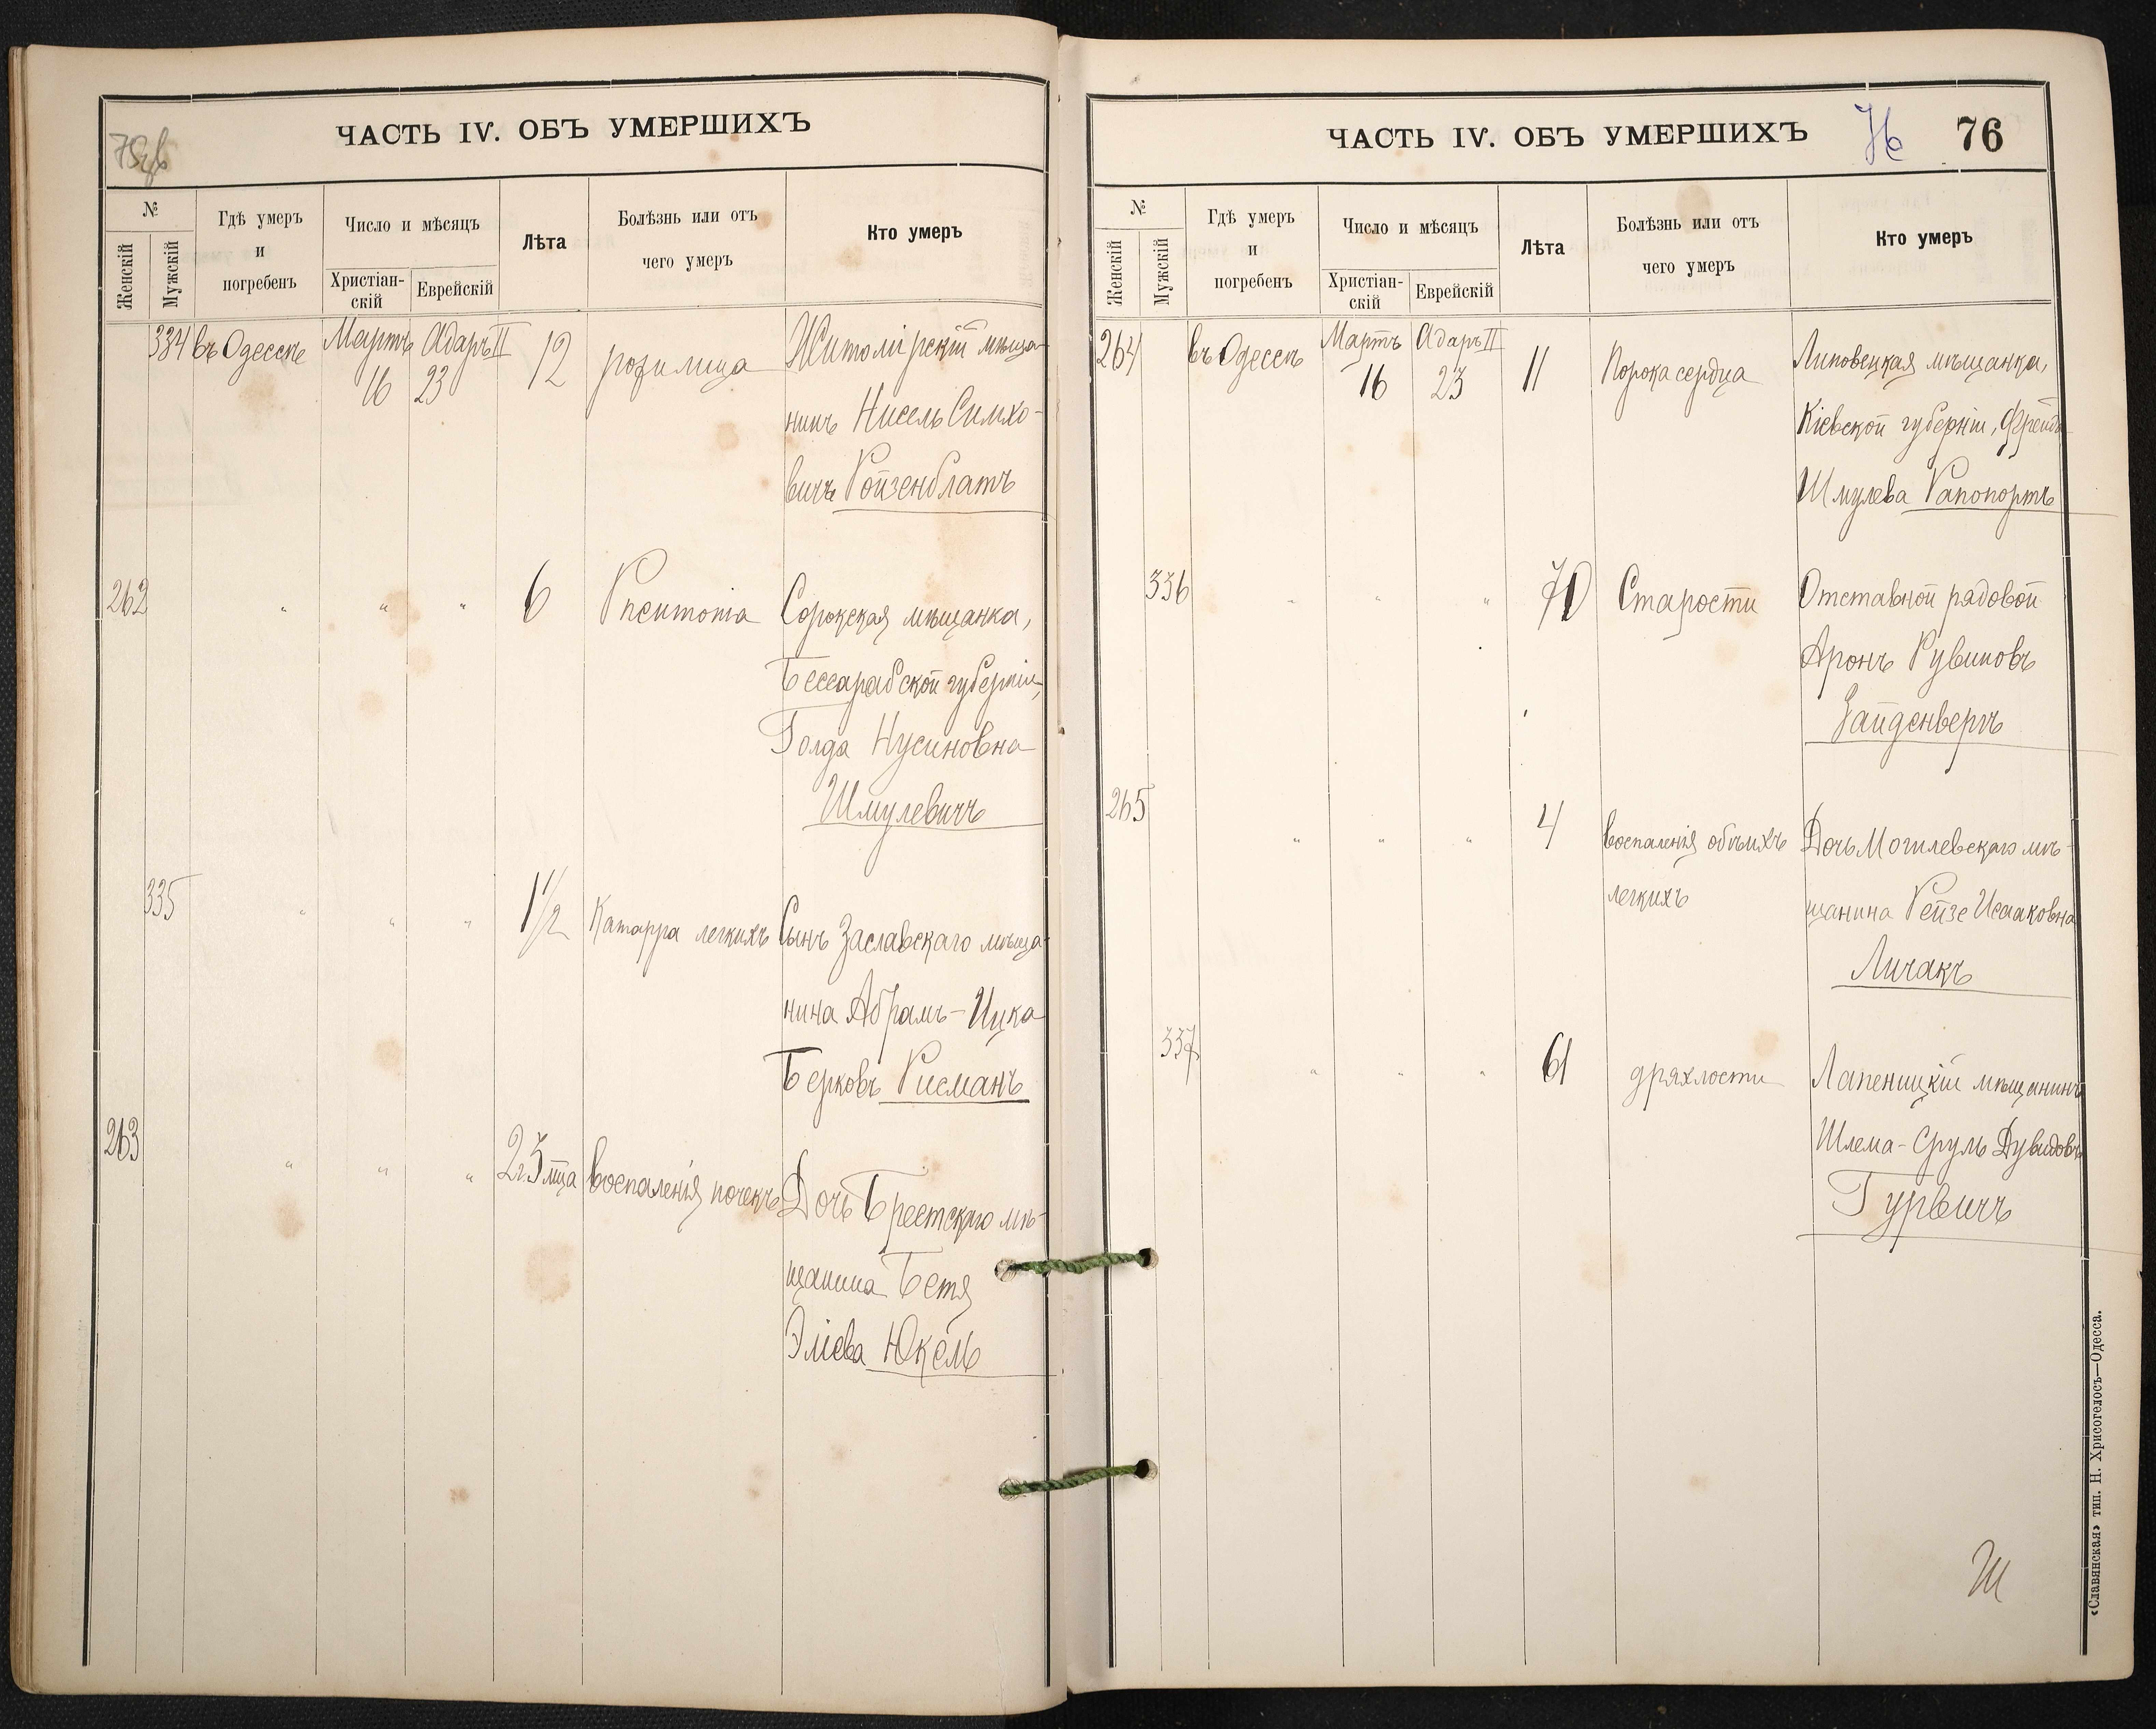 75об
ЧАСТЬ IV. ОБЪ УМЕРШИХЪ
№
Женскій
Мужскій
Гдѣ умеръ
и
погребенъ
Число и мѣсяцъ
Христіан-
скій
Еврейскій
Лѣта
Болѣзнь или отъ
чего умеръ
Кто умеръ
334 въ Одессѣ Мартъ Адаръ II 12 рожилища Житомірскій мѣща-
16 23
нинъ Нисель Симхо-
вичъ Ройзенблатъ
262 " " " 6 Pneumonia Сорокская мѣщанка,
Бессарабской губерніи,
Голда Нусиновна
Шмулевичъ
335 " " " 1 1/2 Катарра легкихъ Сынъ Заславскаго мѣща-
нина Абрамъ-Ицка
Берковъ Рисманъ
263 " " " 2 г. 3 мца воспаленія почекъ Дочь Брестскаго мѣ-
щанина Бетя
Эліева Юкель
ЧАСТЬ IV. ОБЪ УМЕРШИХЪ 76 76
№
Женскій
Мужскій
Гдѣ умеръ
и
погребенъ
Число и мѣсяцъ
Христіан-
скій
Еврейскій
Лѣта
Болѣзнь или отъ
чего умеръ
Кто умеръ
264 въ Одессѣ Мартъ Адаръ II 11 Порока сердца Липовецкая мѣщанка,
16 23
Кіевской губерніи, Фрейда
Шмулева Рапопортъ
336 " " " 70 Старости Отставной рядовой
Аронъ Рувиновъ
Зайденвергъ
265 " " " 4 воспаленія обѣихъ Дочь Могилевскаго мѣ-
легкихъ щанина Рейзе Исааковна
Личакъ
337 " " " 61 дряхлости Лапеницкій мѣщанинъ
Шлема-Сруль Дувидовъ
Гурвичъ
«Славянская» тип. Н. Хрисогелосъ—Одесса.